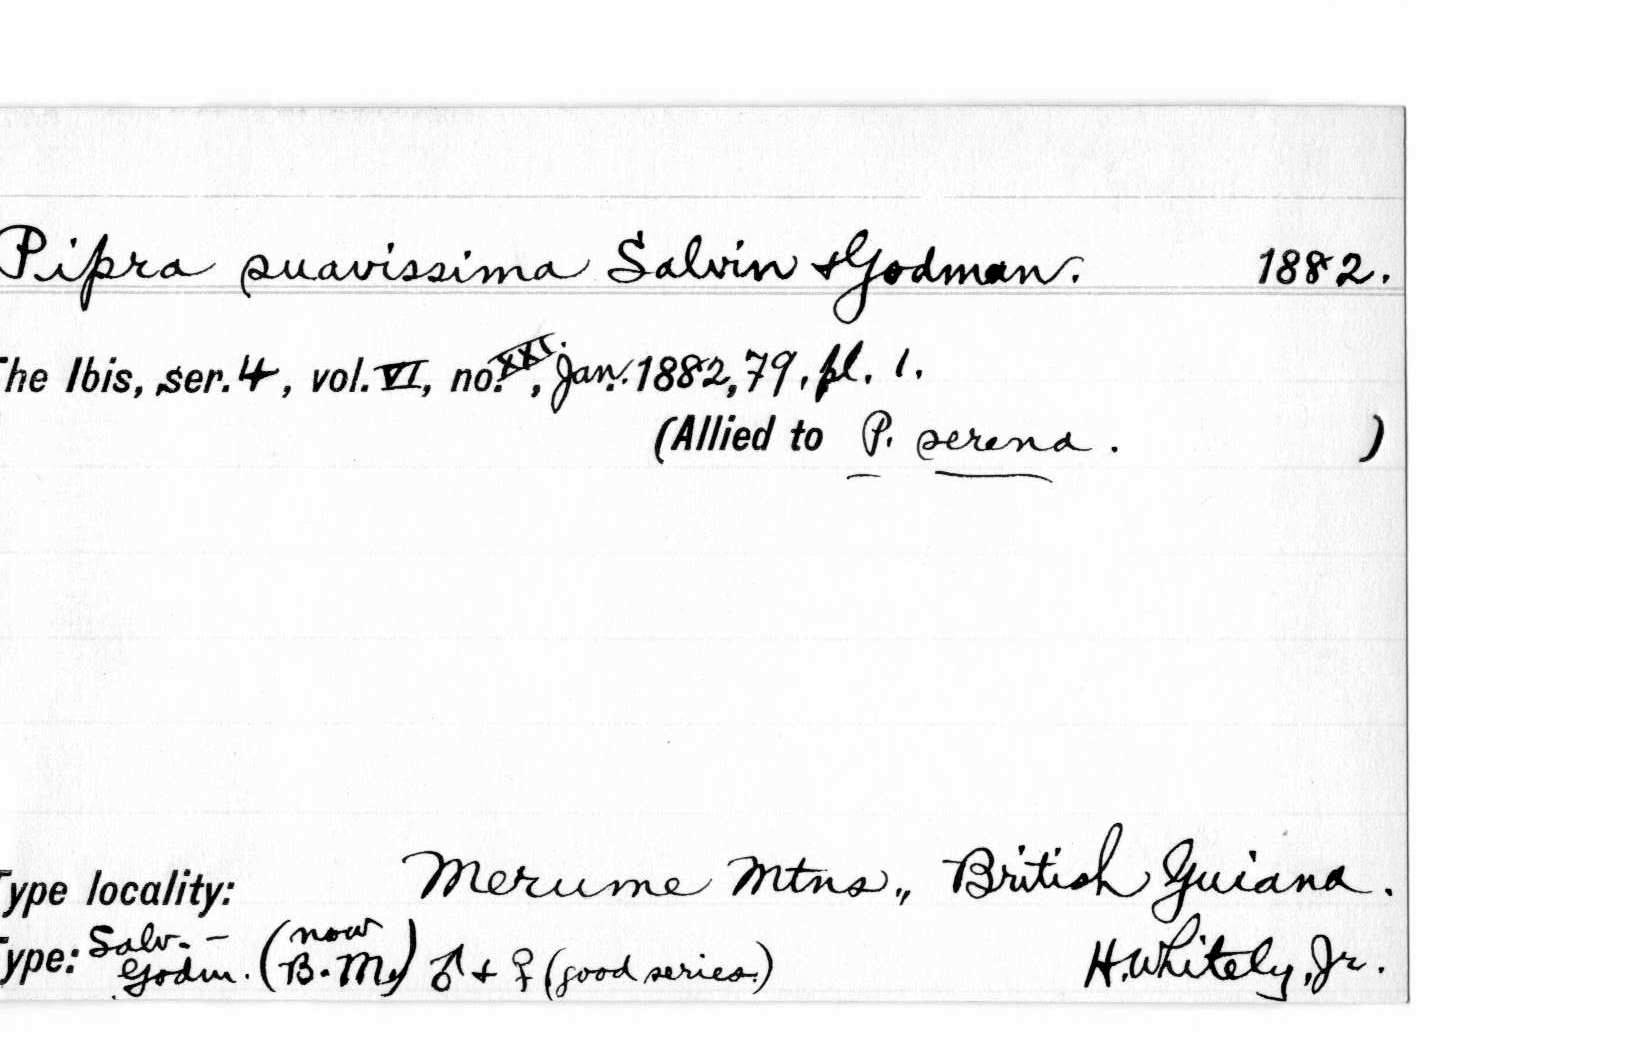 Pipra suavissima Salvin & Godman. 1882.
The Ibis, ser. 4, vol. VI, no. XXI., Jan. 1882, 79, pl. 1.
(Allied to P. serena. )
Type locality: Merume Mtns., British Guiana.
Type: Salv.- Godm. (now B.M.) ♂ + ♀ (good series.) H. Whitely, Jr.